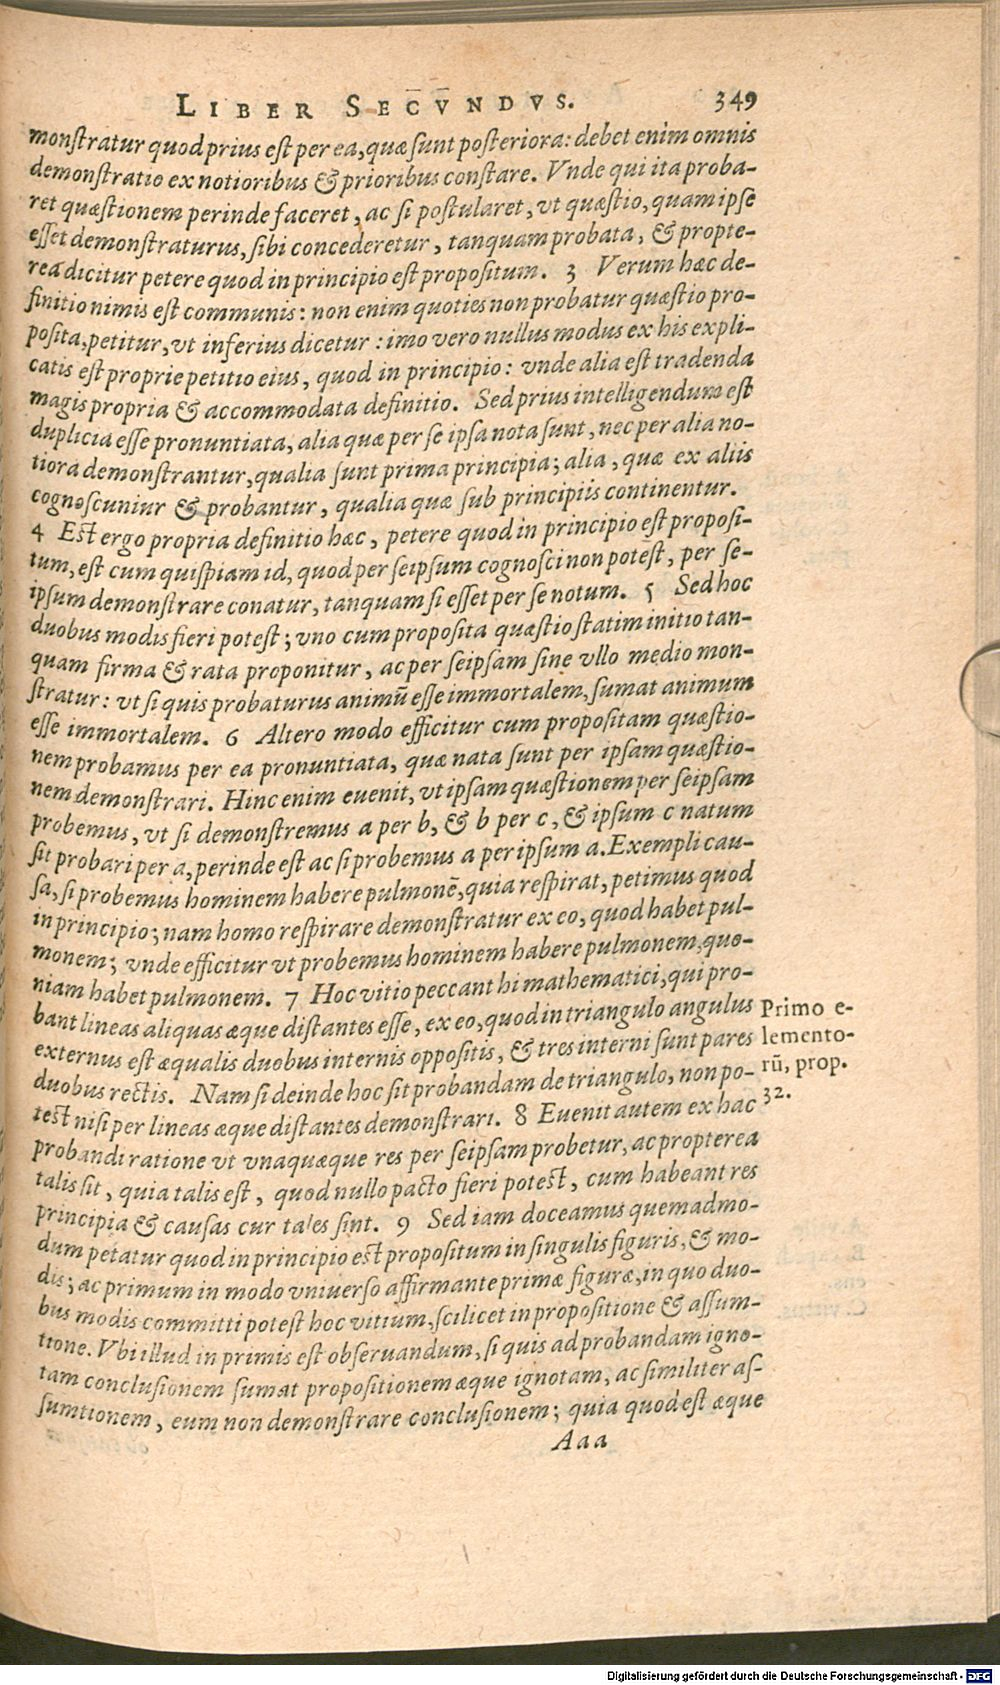 LIBER SECVNDVS. 349
monstratur quod prius est per ea, quæ sunt posteriora: debet enim omnis
demonstratio ex notioribus & prioribus constare. Vnde qui ita proba-
ret quæstionem perinde faceret, ac si postularet, vt quæstio, quam ipse
esset demonstraturus, sibi concederetur, tanquam probata, & propte-
rea dicitur petere quod in principio est propositum. 3 Verum hæc de-
finitio nimis est communis: non enim quoties non probatur quæstio pro-
posita, petitur, vt inferius dicetur: imo vero nullus modus ex his expli-
catis est proprie petitio eius, quod in principio: vnde alia est tradenda
magis propria & accommodata definitio. Sed prius intelligendum est
duplicia esse pronuntiata, alia quæ per se ipsa nota sunt, nec per alia no-
tiora demonstrantur, qualia sunt prima principia; alia, quæ ex aliis
cognoscuntur & probantur, qualia quæ sub principiis continentur.
4 Est ergo propria definitio hæc, petere quod in principio est proposi-
tum, est cum quispiam id, quod per seipsum cognosci non potest, per se-
ipsum demonstrare conatur, tanquam si esset per se notum. 5 Sed hoc
duobus modis fieri potest; vno cum proposita quæstio statim initio tan-
quam firma & rata proponitur, ac per seipsam sine vllo medio mon-
stratur: vt si quis probaturus animū esse immortalem, sumat animum
esse immortalem. 6 Altero modo efficitur cum propositam quæstio-
nem probamus per ea pronuntiata, quæ nata sunt per ipsam quæstio-
nem demonstrari. Hinc enim euenit, vt ipsam quæstionem per seipsam
probemus, vt si demonstremus a per b, & b per c, & ipsum c natum
sit probari per a, perinde est ac si probemus a per ipsum a. Exempli cau-
sa, si probemus hominem habere pulmonē, quia respirat, petimus quod
in principio; nam homo respirare demonstratur ex eo, quod habet pul-
monem; vnde efficitur vt probemus hominem habere pulmonem, quo-
niam habet pulmonem. 7 Hoc vitio peccant hi mathematici, qui pro-
bant lineas aliquas æque distantes esse, ex eo, quod in triangulo angulus
externus est æqualis duobus internis oppositis, & tres interni sunt pares
duobus rectis. Nam si deinde hoc sit probandam de triangulo, non po-
test nisi per lineas æque distantes demonstrari. 8 Euenit autem ex hac
probandi ratione vt vnaquæque res per seipsam probetur, ac propterea
talis sit, quia talis est, quod nullo pacto fieri potest, cum habeant res
principia & causas cur tales sint. 9 Sed iam doceamus quemadmo-
dum petatur quod in principio est propositum in singulis figuris, & mo-
dis; ac primum in modo vniuerso affirmante primæ figuræ, in quo duo-
bus modis committi potest hoc vitium, scilicet in propositione & assum-
tione. Vbi illud in primis est obseruandum, si quis ad probandam igno-
tam conclusionem sumat propositionem æque ignotam, ac similiter as-
sumtionem, eum non demonstrare conclusionem; quia quod est æque
Aaa
Primo e-
lemento-
rū, prop.
32.
Digitalisierung gefördert durch die Deutsche Forschungsgemeinschaft - DFG